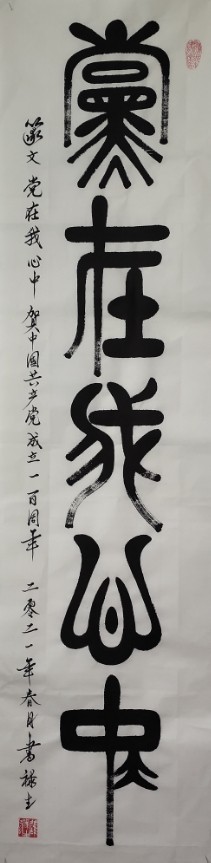 黨在我心中
篆文 党在我心中 贺中国共产党成立一百周年 二零二一年春月書